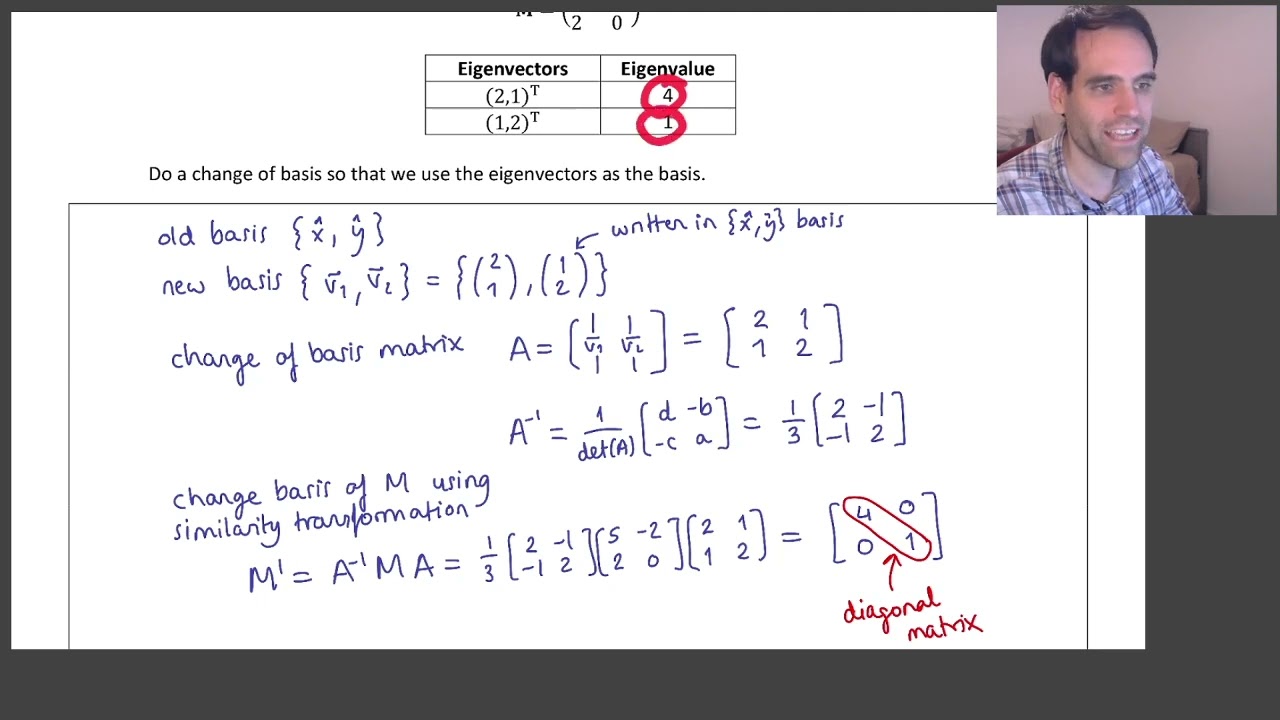 M = (2 0)
Eigenvectors Eigenvalue
(2,1)ᵀ 4
(1,2)ᵀ 1
Do a change of basis so that we use the eigenvectors as the basis.
old basis {x̂, ŷ}
written in {x̂, ŷ} basis
new basis {v̄₁, v̄₂} = {(2 1), (1 2)}
change of basis matrix A = [v̄₁ v̄₂] = [2 1
1 2]
A⁻¹ = 1/det(A) [d -b
-c a] = 1/3 [2 -1
-1 2]
change basis of M using
similarity transformation
M' = A⁻¹ M A = 1/3 [2 -1
-1 2] [5 -2
2 0] [2 1
1 2] = [4 0
0 1]
diagonal
matrix